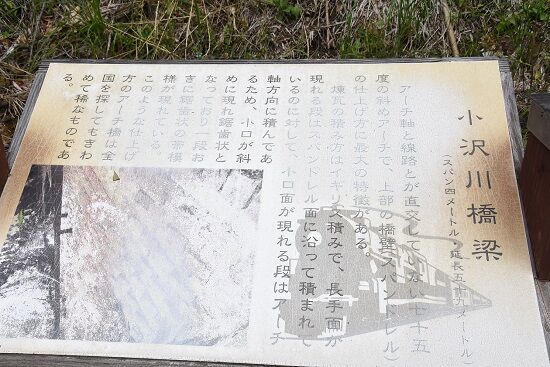 小沢川橋梁
（スパン四メートル・延長五十六メートル）
アーチ軸と線路とが直交していない七十五
度の斜めアーチで、上部の橋壁（スパンドレル）
の仕上げ方に最大の特徴がある。
煉瓦の積み方はイギリス積みで、長手面が
現れる段はスパンドレル面に沿って積まれて
いるのに対して、小口面が現れる段はアーチ
軸方向に積んであ
るため、小口が斜
めに現れ鋸歯状と
なっており一段お
きに鋸歯状の帯模
様が現れている。
このような仕上げ
方のアーチ橋は全
国を探してもきわ
めて稀なものであ
る。